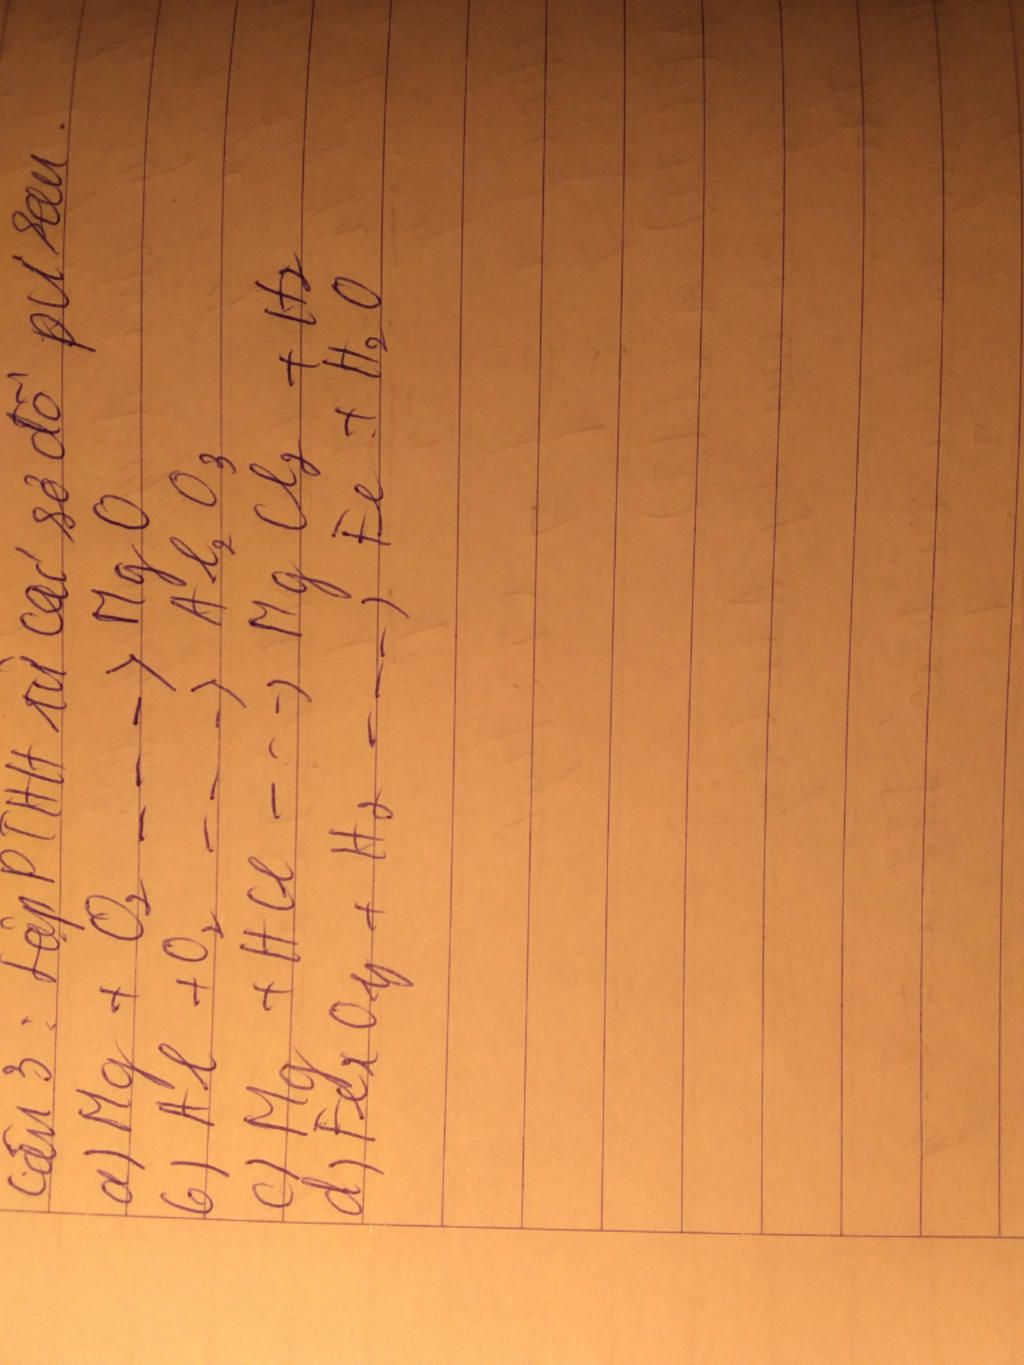 Câu 3: Lập PTHH từ các sơ đồ pư sau.
a) Mg + O₂ ----> MgO
b) Al + O₂ ----> Al₂O₃
c) Mg + HCl ---> MgCl₂ + H₂
d) FexOy + H₂ ----> Fe + H₂O